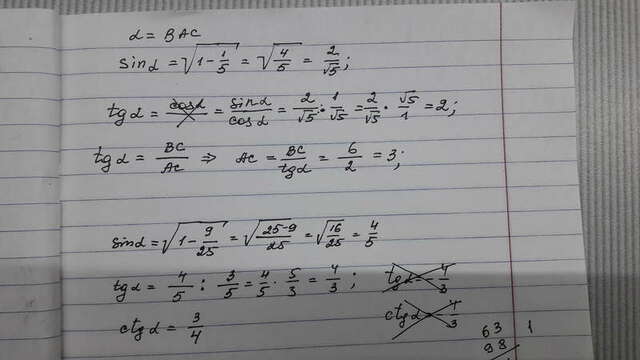 α = BAC
sinα = √(1 - 1/5) = √(4/5) = 2/√5;
tgα = = sinα/cosα = 2/√5 : 1/√5 = 2/√5 · √5/1 = 2;
tgα = BC/AC ⇒ AC = BC/tgα = 6/2 = 3;
sinα = √(1 - 9/25) = √((25-9)/25) = √(16/25) = 4/5
tgα = 4/5 : 3/5 = 4/5 · 5/3 = 4/3; tgα = 4/3
ctgα = 3/4 ctgα = 4/3
63 1